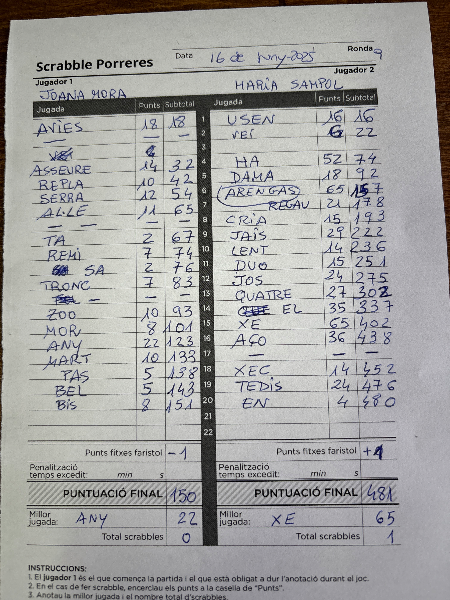 Scrabble Porreres Data 16 de juny-2025 Ronda 9
Jugador 1 Jugador 2
JOANA MORA MARIA SAMPOL
Jugada Punts Subtotal Jugada Punts Subtotal
AVIES 18 18 1 USEN 16 16
— — — 2 VEI 6 22
3
ASSEURE 14 32 4 HA 52 74
REPLA 10 42 5 DAMA 18 92
SERRA 12 54 6 ABENGAS 65 157
AL·LE 11 65 7 REGAU 21 178
— — — 8 CRIA 15 193
TA 2 67 9 JAÏS 29 222
REMI 7 74 10 LENT 14 236
SA 2 76 11 DUO 15 251
TRONC 7 83 12 JOS 24 275
— — 13 QUATRE 27 302
ZOO 10 93 14 EL 35 337
MOR 8 101 15 XE 65 402
ANY 22 123 16 AÇO 36 438
MART 10 133 17 — — —
PAS 5 138 18 XEC 14 452
BEL 5 143 19 TEDIS 24 476
BIS 8 151 20 EN 4 480
21
22
Punts fitxes faristol -1 Punts fitxes faristol +1
Penalització temps excedit: min s Penalització temps excedit: min s
PUNTUACIÓ FINAL 150 PUNTUACIÓ FINAL 481
Millor jugada: ANY 22 Millor jugada: XE 65
Total scrabbles 0 Total scrabbles 1
INSTRUCCIONS:
1. El jugador 1 és el que comença la partida i el que està obligat a dur l'anotació durant el joc.
2. En el cas de fer scrabble, encercleu els punts a la casella de "Punts".
3. Anotau la millor jugada i el nombre total d'scrabbles.